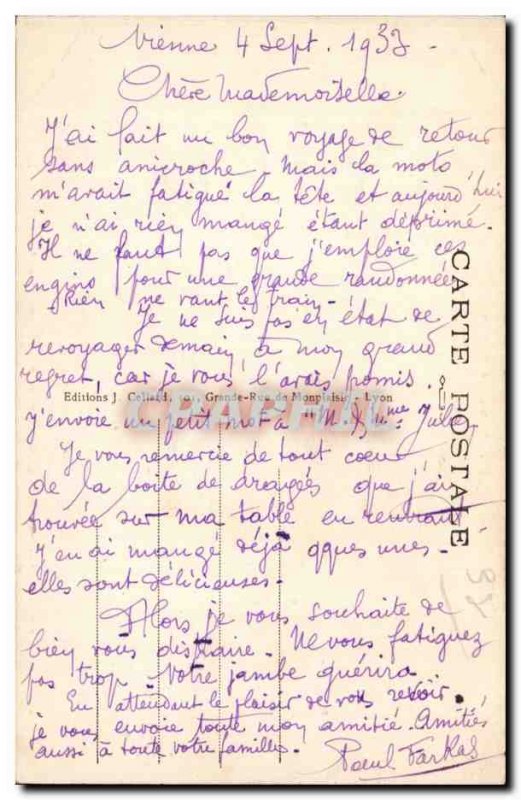 Vienne 4 Sept. 1937 -
Chère Mademoiselle.
J'ai fait un bon voyage de retour
sans anicroche, mais la moto
m'avait fatigué la tête et aujourd'hui
je n'ai rien mangé étant déprimé.
Il ne faut pas que j'emploie ces
engins pour une grande randonnée
Rien ne vaut le train -
Je ne suis pas en état de
revoyager demain, à mon grand
regret, car je vous l'avais promis.
Editions J. Cellard, Grande-Rue de Monplaisir, Lyon
j'envoie un petit mot à M. & Mme Julien
Je vous remercie de tout coeur
de la boite de dragées que j'ai
trouvée sur ma table en rentrant
J'en ai mangé déjà qques unes -
elles sont délicieuses -
Alors je vous souhaite de
bien vous distraire. Ne vous fatiguez
pas trop. Votre jambe guérira
En attendant le plaisir de vous revoir.
je vous envoie toute mon amitié. Amitiés
aussi à toute votre famille.
Paul Farkas
CARTE POSTALE